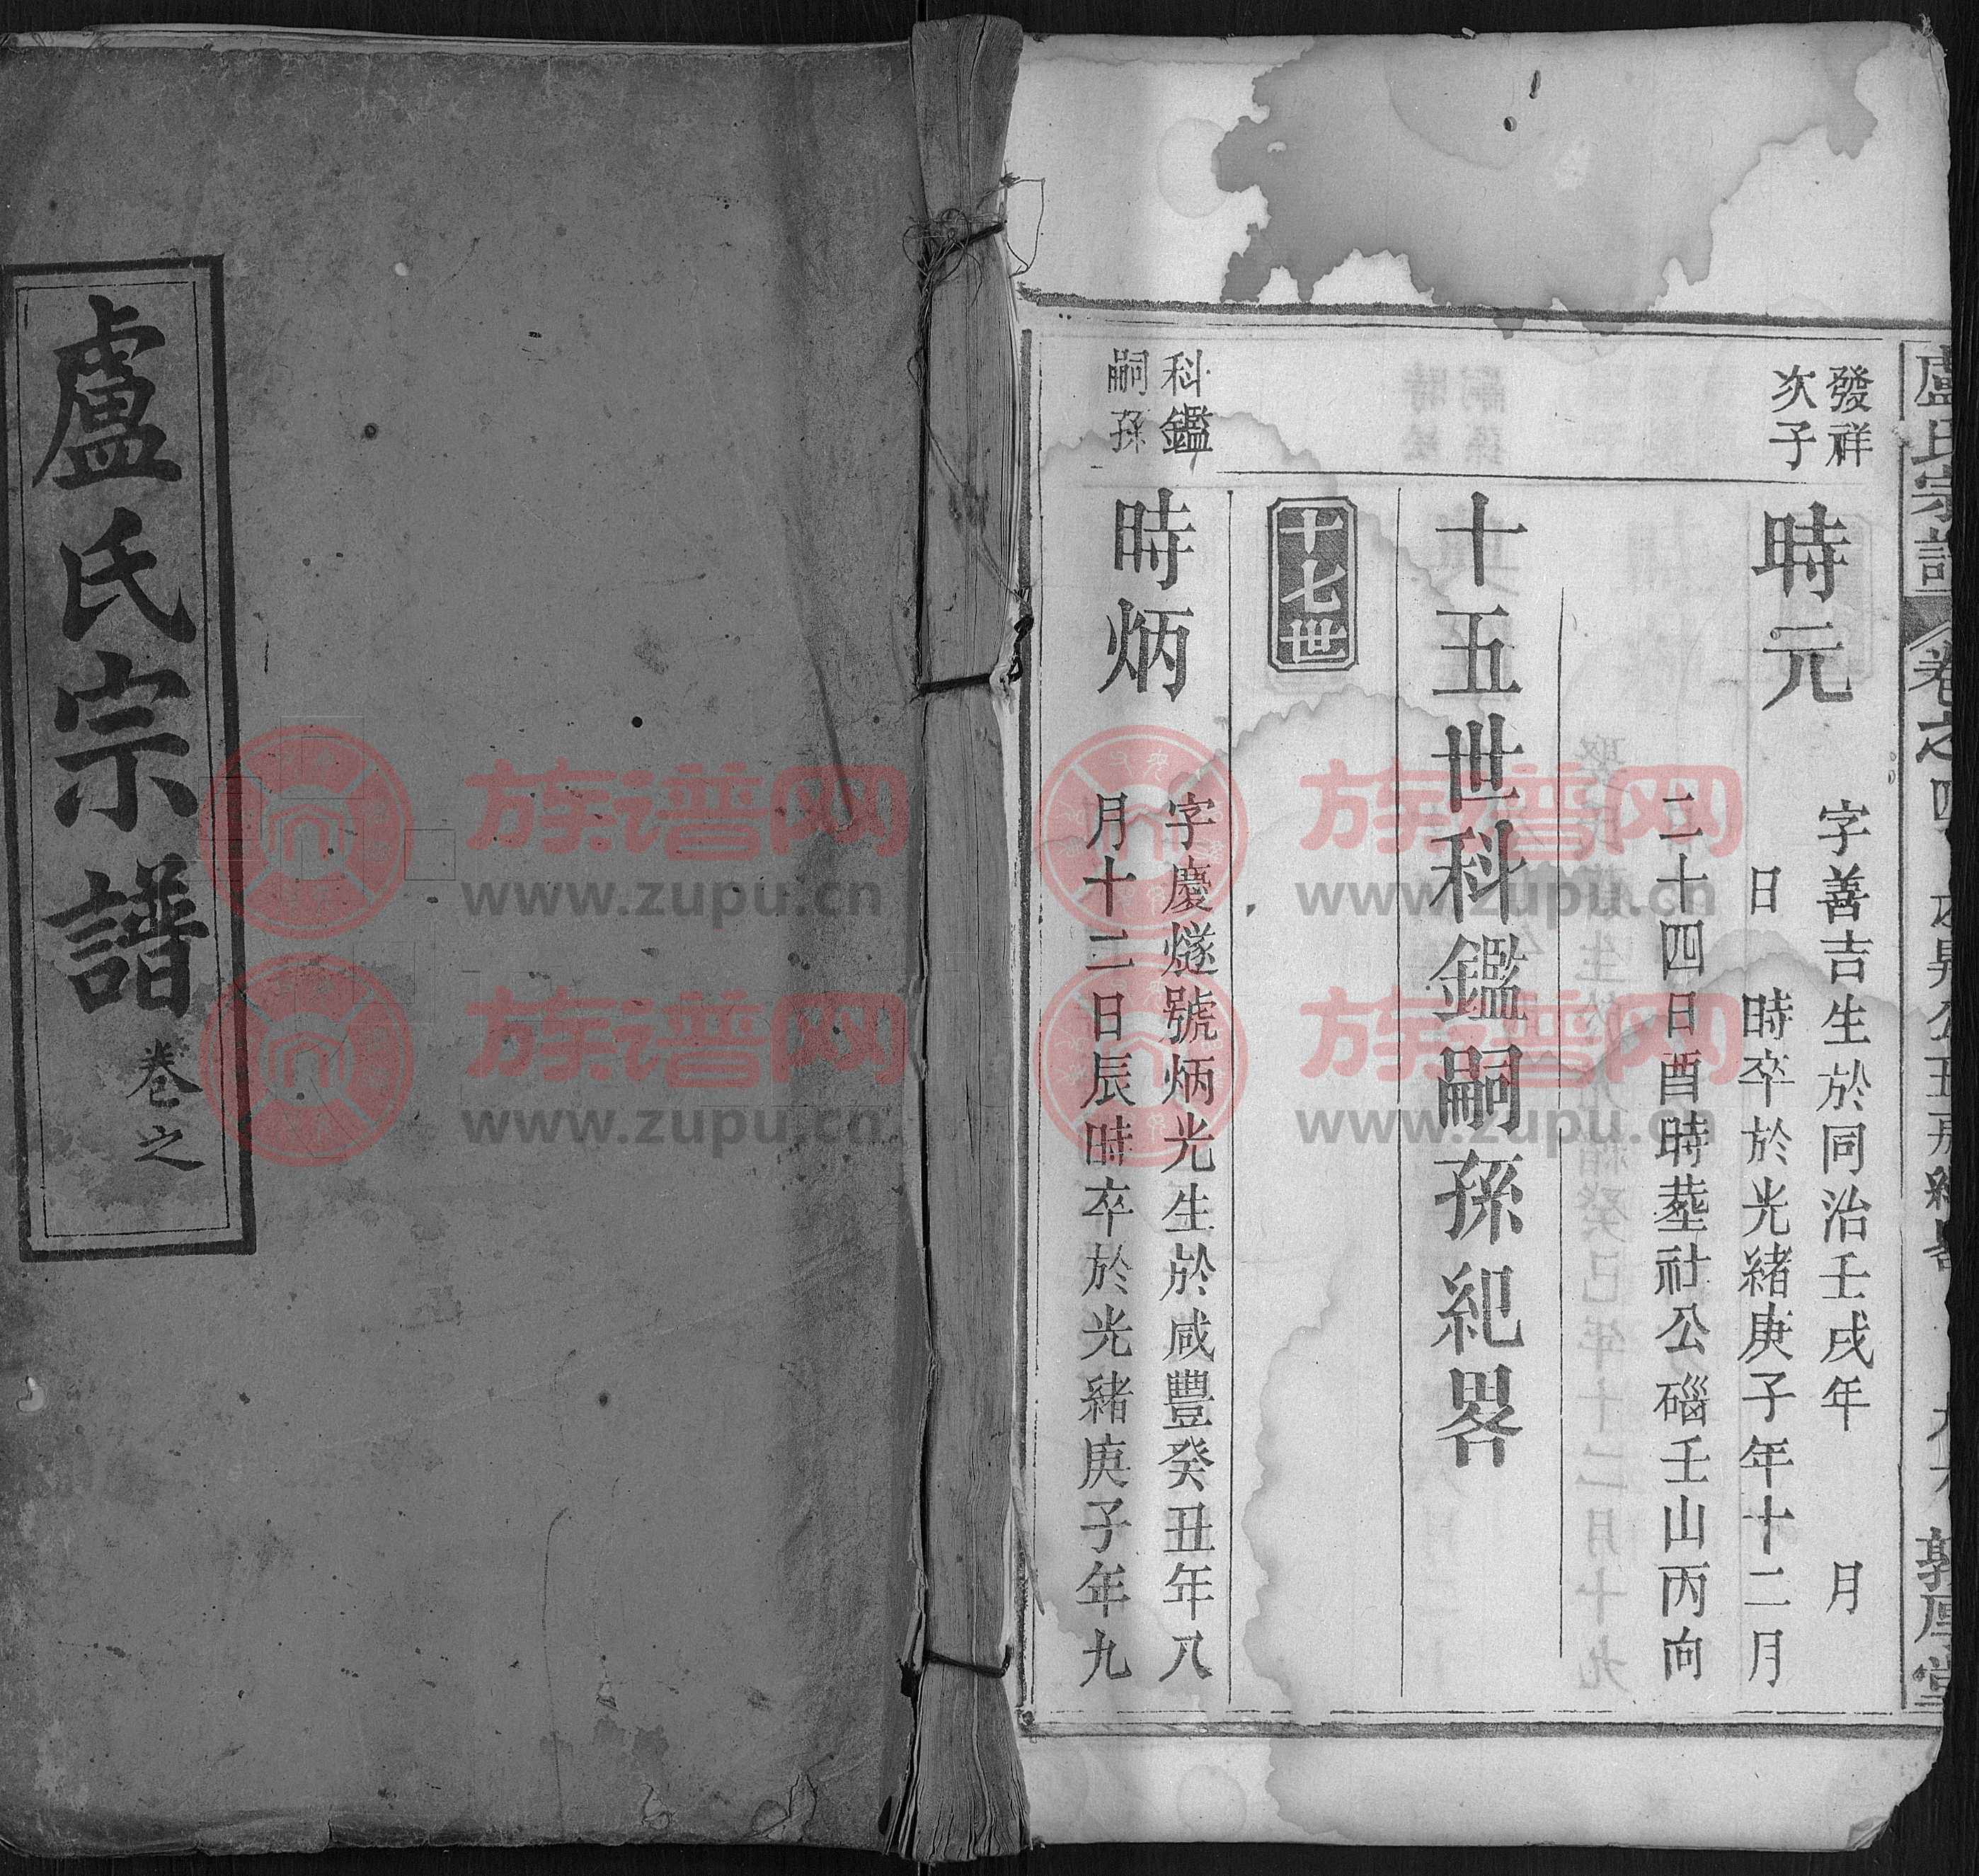 盧氏宗譜
卷之
盧氏宗譜
卷之四
公五房紀畧
敦厚堂
發祥
次子
時元
字善吉生於同治壬戌年 月
日 時卒於光緒庚子年十二月
二十四日酉時塟社公碯壬山丙向
十五世科鑑嗣孫紀畧
十七世
科鑑
嗣孫
時炳
字慶燧號炳光生於咸豐癸丑年八
月十二日辰時卒於光緒庚子年九
族谱网
www.zupu.cn
族谱网
www.zupu.cn
族谱网
www.zupu.cn
族谱网
www.zupu.cn